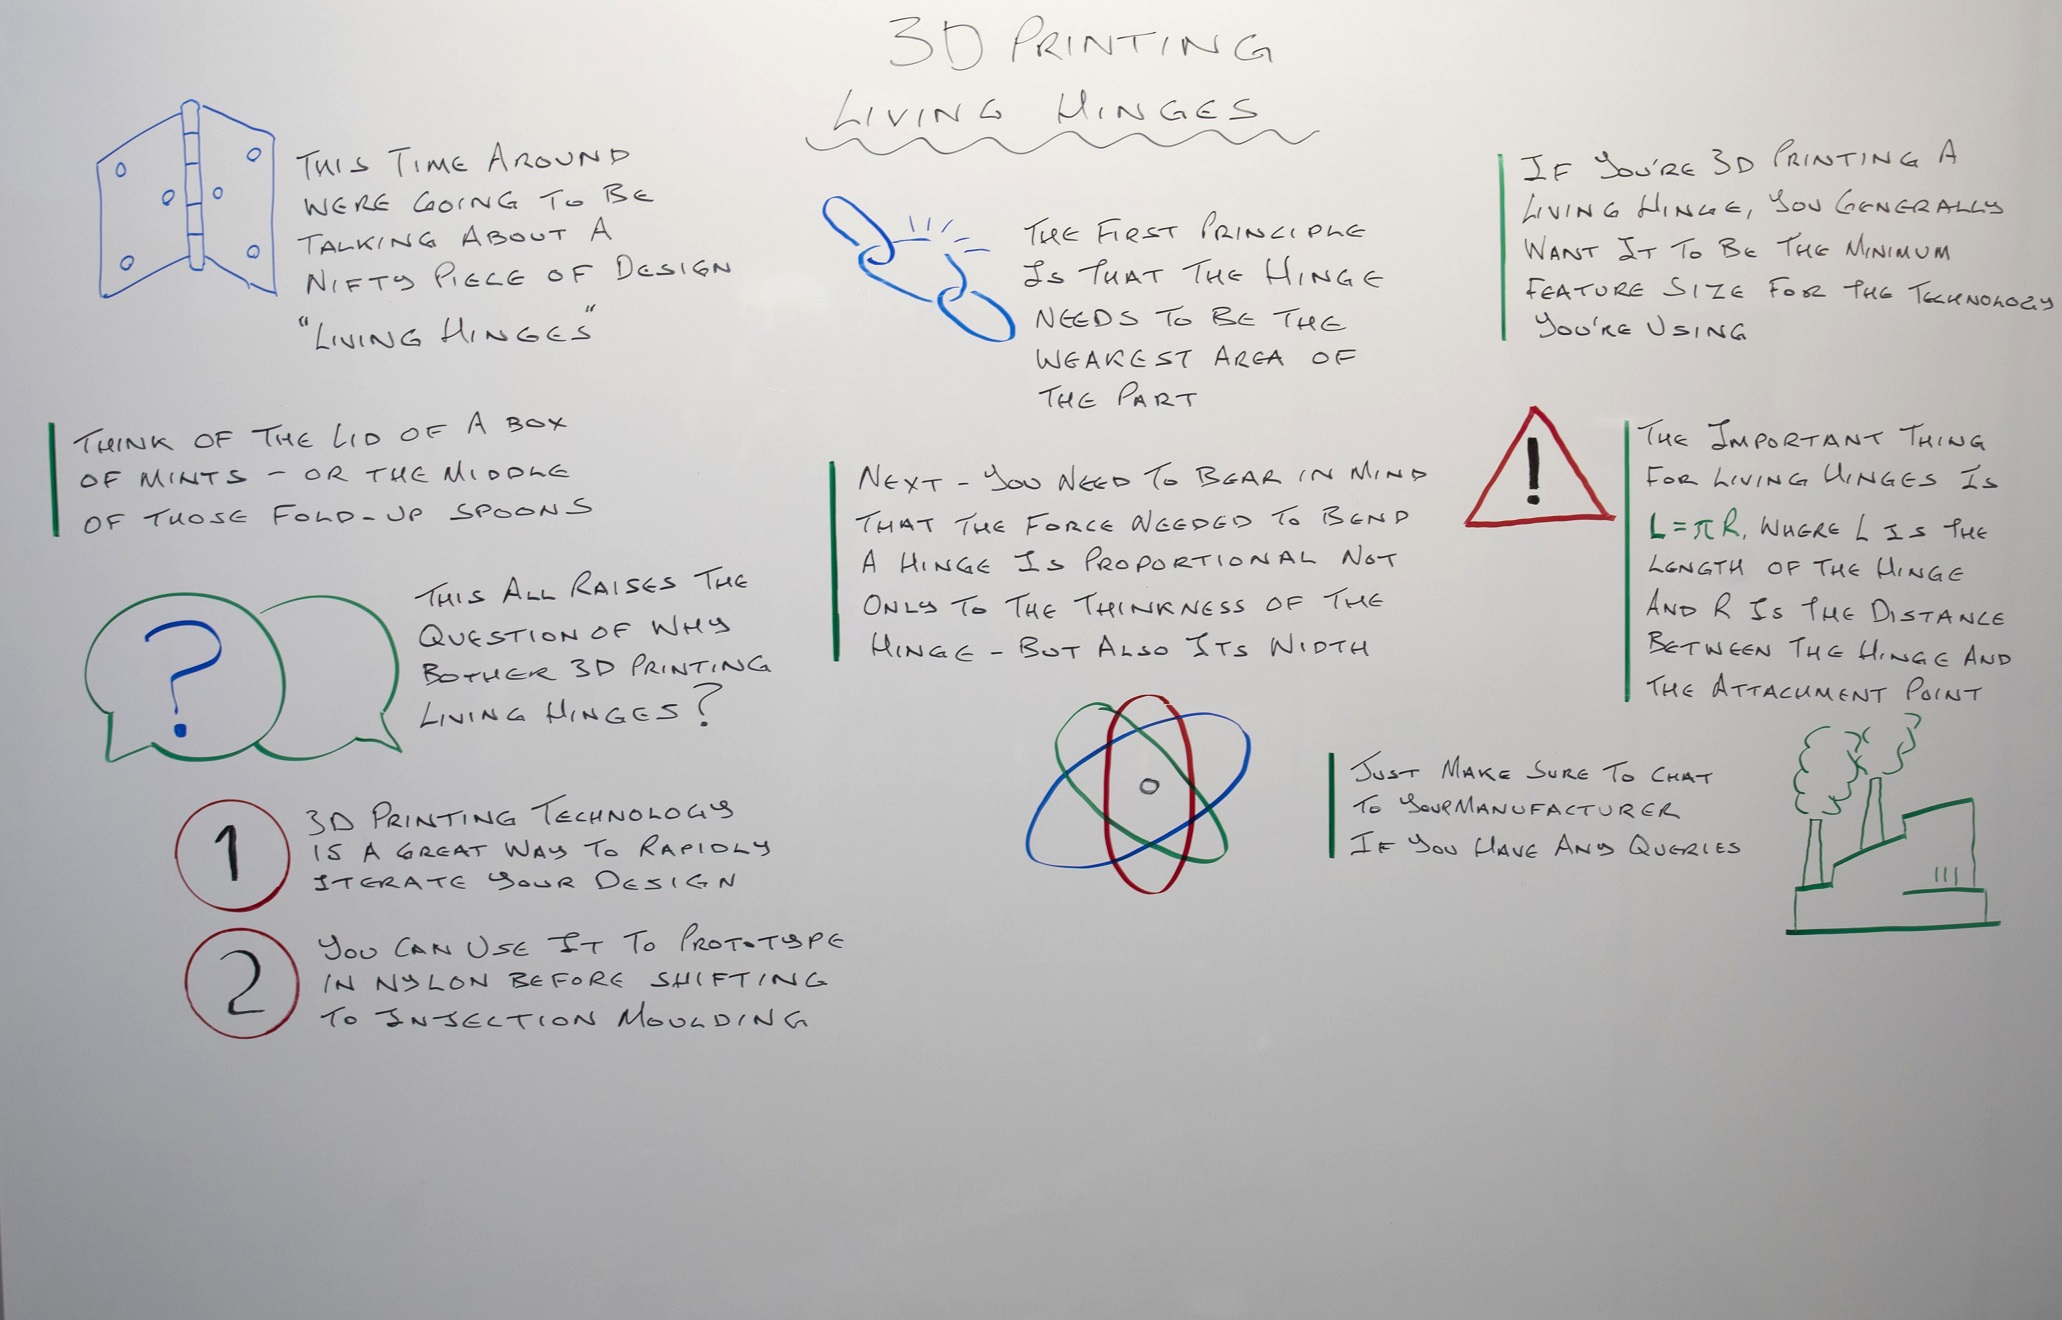 3D PRINTING
LIVING HINGES
THIS TIME AROUND
WERE GOING TO BE
TALKING ABOUT A
NIFTY PIECE OF DESIGN
"LIVING HINGES"
THINK OF THE LID OF A BOX
OF MINTS - OR THE MIDDLE
OF THOSE FOLD-UP SPOONS
?
THIS ALL RAISES THE
QUESTION OF WHY
BOTHER 3D PRINTING
LIVING HINGES?
1
3D PRINTING TECHNOLOGY
IS A GREAT WAY TO RAPIDLY
ITERATE YOUR DESIGN
2
YOU CAN USE IT TO PROTOTYPE
IN NYLON BEFORE SHIFTING
TO INJECTION MOULDING
THE FIRST PRINCIPLE
IS THAT THE HINGE
NEEDS TO BE THE
WEAKEST AREA OF
THE PART
NEXT - YOU NEED TO BEAR IN MIND
THAT THE FORCE NEEDED TO BEND
A HINGE IS PROPORTIONAL NOT
ONLY TO THE THINKNESS OF THE
HINGE - BUT ALSO ITS WIDTH
IF YOU'RE 3D PRINTING A
LIVING HINGE, YOU GENERALLY
WANT IT TO BE THE MINIMUM
FEATURE SIZE FOR THE TECHNOLOGY
YOU'RE USING
!
THE IMPORTANT THING
FOR LIVING HINGES IS
L = π R, WHERE L IS THE
LENGTH OF THE HINGE
AND R IS THE DISTANCE
BETWEEN THE HINGE AND
THE ATTACHMENT POINT
JUST MAKE SURE TO CHAT
TO YOUR MANUFACTURER
IF YOU HAVE ANY QUERIES